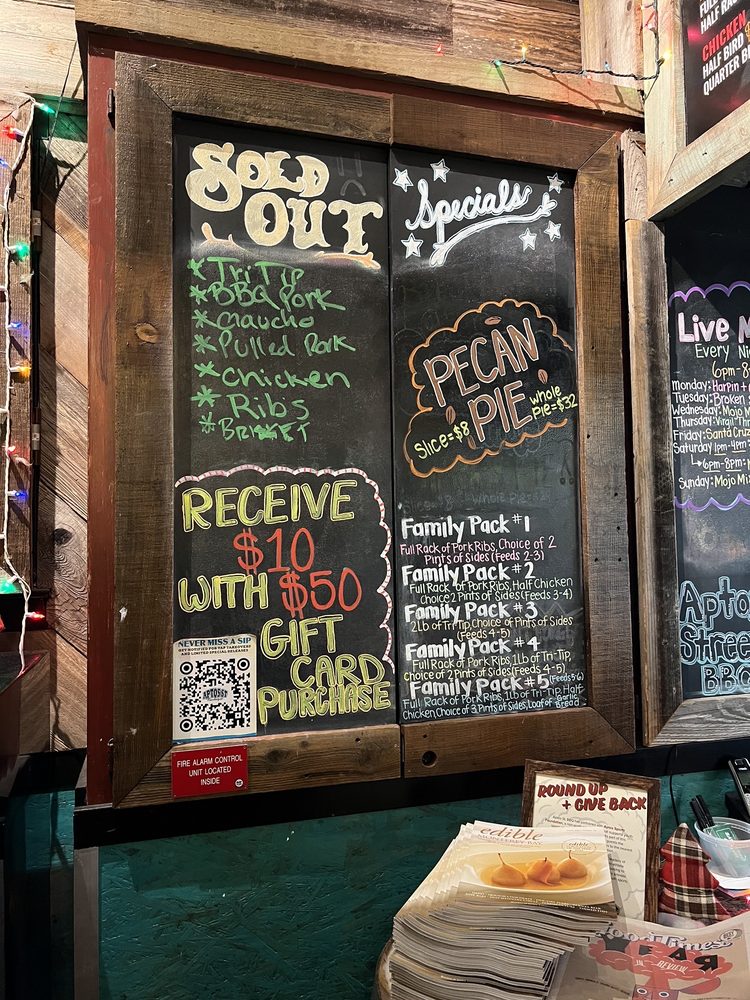 SOLD
OUT
* Tri Tip
* BBQ Pork
* Gaucho
* Pulled Pork
* Chicken
* Ribs
* BRISKET
RECEIVE
$10
WITH $50
GIFT
CARD
PURCHASE
NEVER MISS A SIP
GET NOTIFIED FOR TAP TAKEOVERS
AND LIMITED SPECIAL RELEASES
APTOSST
FIRE ALARM CONTROL
UNIT LOCATED
INSIDE
Specials
PECAN
PIE
Slice=$8
whole
Pie=$32
Family Pack #1
Full Rack of Pork Ribs, Choice of 2
Pints of Sides (Feeds 2-3)
Family Pack #2
Full Rack of Pork Ribs, Half Chicken
Choice 2 Pints of Sides (Feeds 3-4)
Family Pack #3
2lb of Tri-Tip, Choice of Pints of Sides
(Feeds 4-5)
Family Pack #4
Full Rack of Pork Ribs 1Lb of Tri-Tip,
choice of 2 Pints of Sides (Feeds 4-5)
Family Pack #5 (Feeds 5-6)
Full Rack of Pork Ribs, 1lb of Tri-Tip, Half
Chicken, Choice of 3 Pints of Sides, Loaf of Garlic
Bread
HALF RA
CHICKEN
HALF BIRD
QUARTER B
Live M
Every Ni
6pm-8
Monday: Harpin +
Tuesday: Broken
Wednesday: Mojo
Thursday: Virgil Thr
Friday: Santa Cruz
Saturday 1pm-4pm
6pm-8pm:
Sunday: Mojo Mi
Apto
Stree
BBQ
ROUND UP
+ GIVE BACK
edible
MONTEREY BAY
IN REVIEW